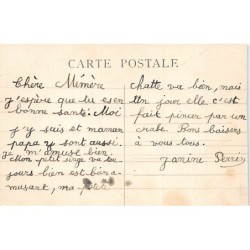 CARTE POSTALE
Chère Mémère
j'espère que tu es en
bonne santé. Moi
j'y suis et maman
papa y sont aussi.
je m'amuse bien
Mon petit singe va tou
jours bien est bien a
musant, ma petit
chatte va bien, mais
Un jour elle c'est
fait pincer par un
crabe. Bons baisers
à vous tous.
Janine Perrin